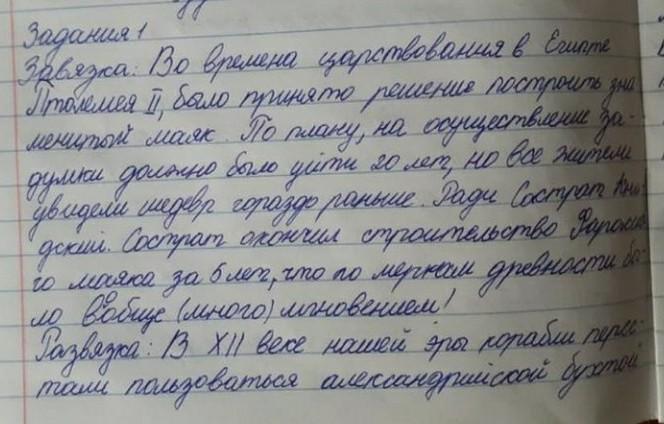 Задания 1
Завязка: Во времена царствования в Египте
Птолемея II, было принято решение построить зна
менитый маяк. По плану, на осуществление за-
думки должно было уйти 20 лет, но все жители
увидели шедевр гораздо раньше. Ради Сострат Кни-
дский. Сострат окончил строительство Фаросско
го маяка за 5 лет, что по меркам древности бы-
ло вообще (много) мгновением!
Развязка: В XII веке нашей эры корабли перес-
тали пользоваться александрийской бухтой